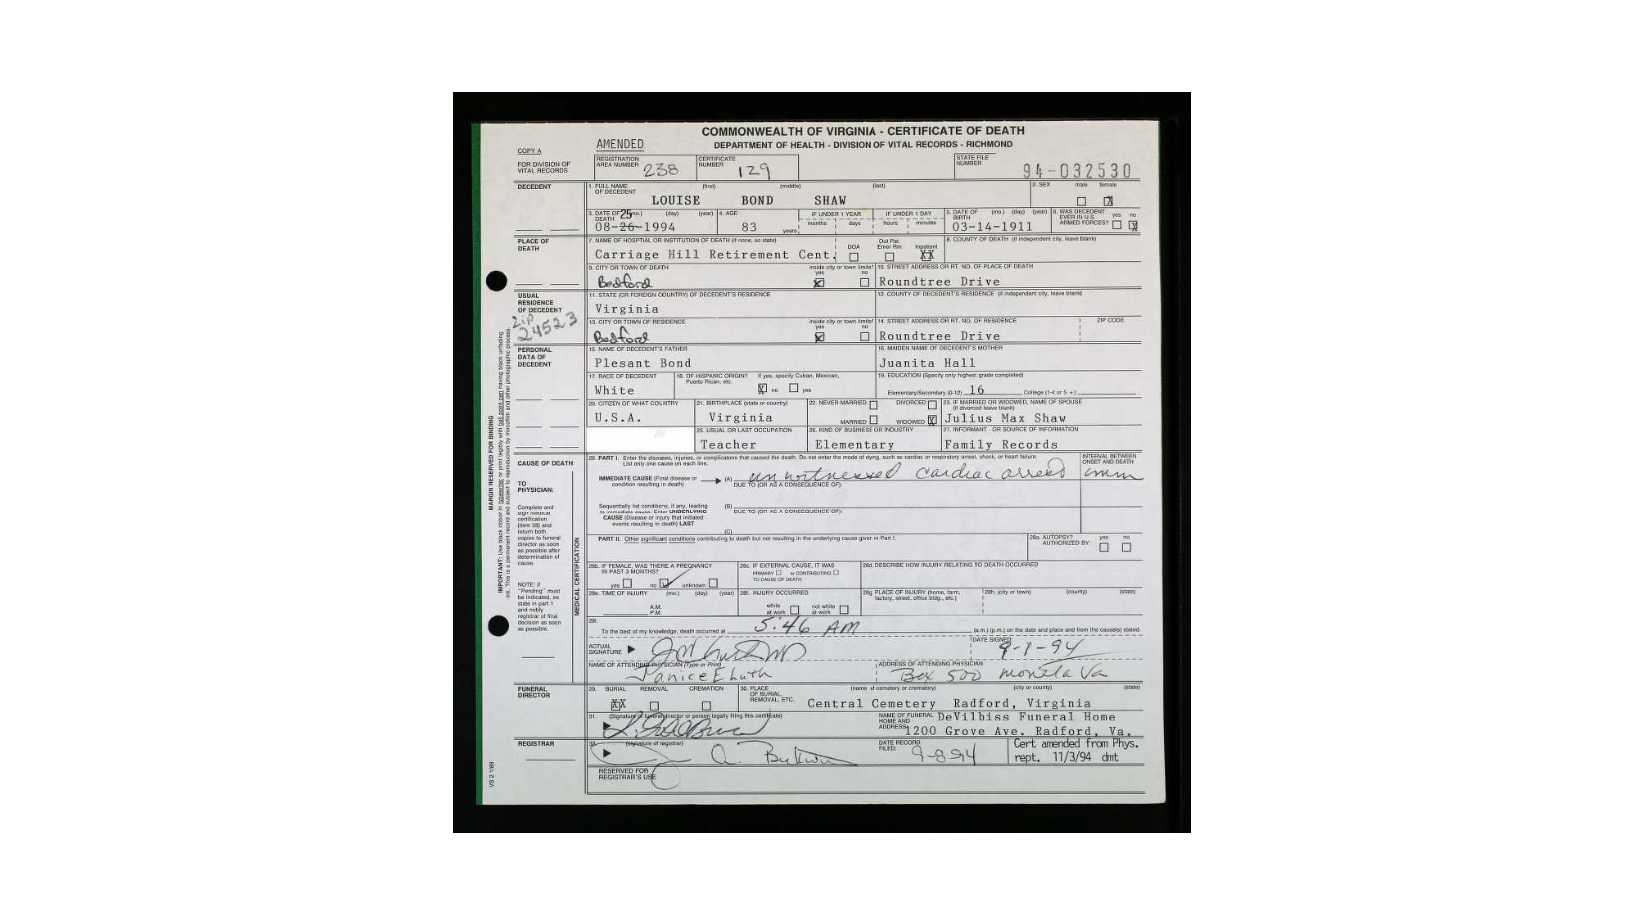 COMMONWEALTH OF VIRGINIA - CERTIFICATE OF DEATH
DEPARTMENT OF HEALTH - DIVISION OF VITAL RECORDS - RICHMOND
COPY A
AMENDED
FOR DIVISION OF VITAL RECORDS
REGISTRATION AREA NUMBER 238
CERTIFICATE NUMBER 129
STATE FILE NUMBER 94-032530
DECEDENT
1. FULL NAME OF DECEDENT (first) (middle) (last)
LOUISE BOND SHAW
2. SEX male female X
3. DATE OF DEATH (mo.) (day) (year)
25
08-26-1994
4. AGE 83 years
IF UNDER 1 YEAR months days
IF UNDER 1 DAY hours minutes
5. DATE OF BIRTH (mo.) (day) (year)
03-14-1911
6. WAS DECEDENT EVER IN U.S. ARMED FORCES? yes no X
PLACE OF DEATH
7. NAME OF HOSPITAL OR INSTITUTION OF DEATH (if none, so state)
Carriage Hill Retirement Cent.
DOA
Out Pat. Emer Rm
Inpatient XX
8. COUNTY OF DEATH (if independent city, leave blank)
9. CITY OR TOWN OF DEATH
Bedford
inside city or town limits? yes X no
10. STREET ADDRESS OR RT. NO. OF PLACE OF DEATH
Roundtree Drive
USUAL RESIDENCE OF DECEDENT
Zip 24523
11. STATE (OR FOREIGN COUNTRY) OF DECEDENT'S RESIDENCE
Virginia
12. COUNTY OF DECEDENT'S RESIDENCE (if independent city, leave blank)
13. CITY OR TOWN OF RESIDENCE
Bedford
inside city or town limits? yes X no
14. STREET ADDRESS OR RT. NO. OF RESIDENCE ZIP CODE
Roundtree Drive
PERSONAL DATA OF DECEDENT
15. NAME OF DECEDENT'S FATHER
Plesant Bond
16. MAIDEN NAME OF DECEDENT'S MOTHER
Juanita Hall
17. RACE OF DECEDENT
White
18. OF HISPANIC ORIGIN? If yes, specify Cuban, Mexican, Puerto Rican, etc.
X no yes
19. EDUCATION (Specify only highest grade completed)
Elementary/Secondary (0-12) 16 College (1-4 or 5 +)
20. CITIZEN OF WHAT COUNTRY
U.S.A.
21. BIRTHPLACE (state or country)
Virginia
22. NEVER MARRIED DIVORCED
MARRIED WIDOWED X
23. IF MARRIED OR WIDOWED, NAME OF SPOUSE (if divorced leave blank)
Julius Max Shaw
25. USUAL OR LAST OCCUPATION
Teacher
26. KIND OF BUSINESS OR INDUSTRY
Elementary
27. INFORMANT - OR SOURCE OF INFORMATION
Family Records
CAUSE OF DEATH
28. PART I. Enter the diseases, injuries, or complications that caused the death. Do not enter the mode of dying, such as cardiac or respiratory arrest, shock, or heart failure.
List only one cause on each line.
INTERVAL BETWEEN ONSET AND DEATH
IMMEDIATE CAUSE (Final disease or condition resulting in death)
(A) unwitnessed cardiac arrest
DUE TO (OR AS A CONSEQUENCE OF):
Sequentially list conditions, if any, leading to immediate cause. Enter UNDERLYING CAUSE (Disease or injury that initiated events resulting in death) LAST
(B)
DUE TO (OR AS A CONSEQUENCE OF):
(C)
TO PHYSICIAN:
Complete and sign medical certification (item 28) and return both copies to funeral director as soon as possible after determination of cause.
NOTE: If "Pending" must be indicated, so state in part 1 and notify registrar of final decision as soon as possible.
MEDICAL CERTIFICATION
MARGIN RESERVED FOR BINDING
PART II. Other significant conditions contributing to death but not resulting in the underlying cause given in Part I.
28a. AUTOPSY? AUTHORIZED BY: yes no
28b. IF FEMALE, WAS THERE A PREGNANCY IN PAST 3 MONTHS?
yes no unknown
28c. IF EXTERNAL CAUSE, IT WAS
PRIMARY or CONTRIBUTING
TO CAUSE OF DEATH
28d. DESCRIBE HOW INJURY RELATING TO DEATH OCCURRED
28e. TIME OF INJURY (mo.) (day) (year)
A.M.
P.M.
28f. INJURY OCCURRED
while at work not while at work
28g. PLACE OF INJURY (home, farm, factory, street, office bldg., etc.)
28h. (city or town) (county) (state)
28i.
To the best of my knowledge, death occurred at 5:46 AM (a.m.) (p.m.) on the date and place and from the cause(s) stated.
ACTUAL SIGNATURE
DATE SIGNED
9-1-94
NAME OF ATTENDING PHYSICIAN (Type or Print)
Janice E Luth
ADDRESS OF ATTENDING PHYSICIAN
Box 500 moneta Va
FUNERAL DIRECTOR
29. BURIAL REMOVAL CREMATION
XX
30. PLACE OF BURIAL, REMOVAL, ETC. (name of cemetery or crematory) (city or county) (state)
Central Cemetery Radford, Virginia
31. (Signature of funeral director or person legally filing this certificate)
NAME OF FUNERAL HOME AND ADDRESS:
DeVilbiss Funeral Home
1200 Grove Ave. Radford, Va.
REGISTRAR
32. (signature of registrar)
DATE RECORD FILED:
9-8-94
Cert amended from Phys.
rept. 11/3/94 dmt
RESERVED FOR REGISTRAR'S USE
VS 2 1/89